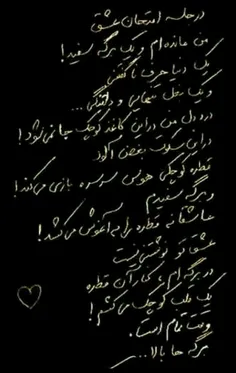 در جلسه امتحان عشق
من مانده‌ام و یک برگه سفید!
یک دنیا حرف ناگفتنی
و یک بغل تنهایی و دلتنگی...
درد دل من در این کاغذ کوچک جا نمی‌شود!
در این سکوت بغض آلود
قطره کوچکی هوس سرسره بازی می‌کند!
و برگه سفیدم
عاشقانه قطره را به آغوش می‌کشد!
عشق تو نوشتنی نیست
در برگه‌ام، کنار آن قطره
یک قلب کوچک می‌کشم!
وقت تمام است.
برگه‌ها بالا...